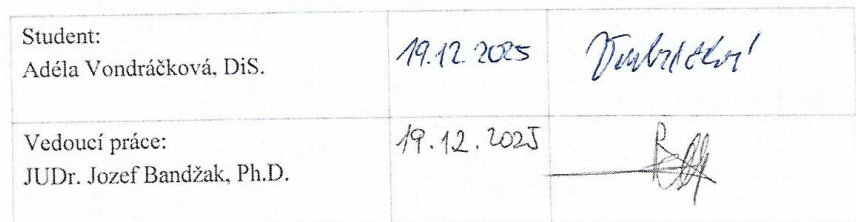 Student:
Adéla Vondráčková, DiS.
19.12.2025
Vedoucí práce:
JUDr. Jozef Bandžak, Ph.D.
19.12.2025